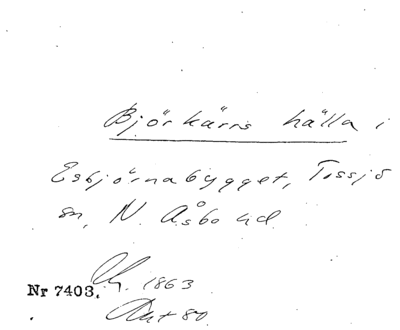 Björkärrs hälla i
Esbjörnabygget, Tossjö
sn, N. Åsbo hd
1863
Nr 7403.
80